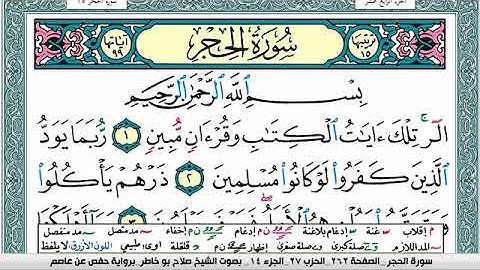 سُورَةُ الْحِجْرِ
ترتيبها ١٥
آياتها ٩٩
بِسْمِ اللَّهِ الرَّحْمَٰنِ الرَّحِيمِ
الٓر تِلْكَ ءَايَٰتُ الْكِتَٰبِ وَقُرْءَانٍ مُّبِينٍ ١ رُّبَمَا يَوَدُّ
الَّذِينَ كَفَرُوا لَوْ كَانُوا مُسْلِمِينَ ٢ ذَرْهُمْ يَأْكُلُوا
م إقلاب غنة إدغام بلاغنة إدغام إخفاء مد متصل مد منفصل
المد اللازم صلة كبرى صلة صغرى قلقلة طبيعي اللون الأزرق لا يلفظ
سورة الحجر_ الصفحة ٢٦٢_ الحزب ٢٧_ الجزء ١٤_ بصوت الشيخ صلاح بو خاطر_ برواية حفص عن عاصم